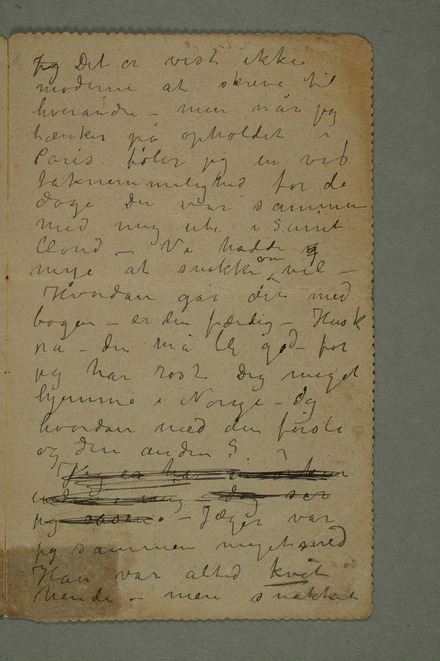 Jeg Det er vist ikke
moderne at skrive til
hverandre – men når jeg
tænker på opholdet i
Paris føler jeg en vis
taknemmelighed for de
dage Du var sammen
med mig ute i Saint
Cloud – Vi hadde
mye at snakke om vil –
Hvordan går det med
bogen – er den færdig – Husk
på – den må bli god – for
jeg har rost Dig meget
hjemme i Norge – Og
hvordan med den første
og den anden S. ?
Jeg er
ser
jeg – Jæger var
jeg sammen meget med
Han var altid kvit
hende – men snakket